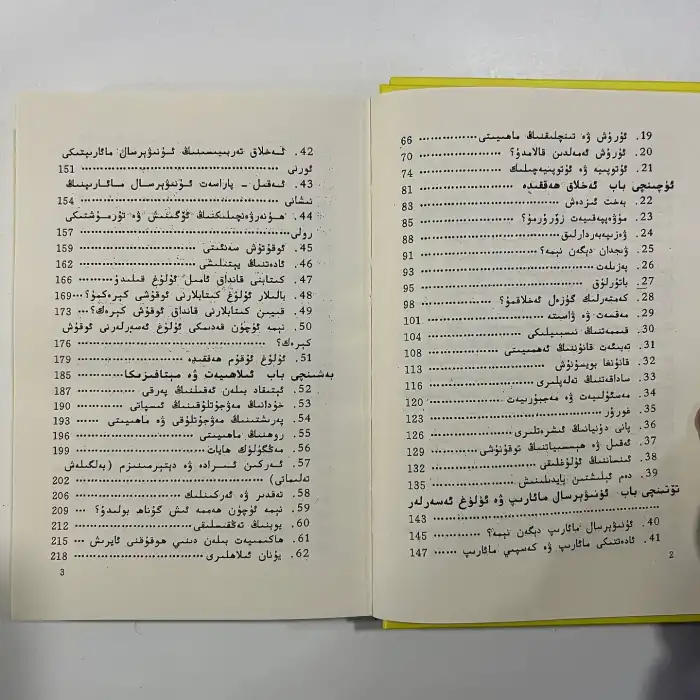 19. ئۇرۇش ۋە تىنچلىقنىڭ ماھىيىتى ................ 66
20. ئۇرۇش ئەمەلدىن قالامدۇ؟ ................ 70
21. ئۇتوپىيە ۋە ئۇتوپىيىچىلىك ................ 74
ئۈچىنچى باب ئەخلاق ھەققىدە ................ 81
22. بەخت ئىزدەش ................ 83
23. مۇۋەپپەقىيەت زۆرۈرمۇ؟ ................ 85
24. ۋەزىپەپەردارلىق ................ 88
25. ۋىجدان دېگەن نېمە؟ ................ 91
26. پەزىلەت ................ 93
27. باتۇرلۇق ................ 95
28. كەمتەرلىك گۈزەل ئەخلاقمۇ؟ ................ 98
29. مەقسەت ۋە ۋاسىتە ................ 101
30. قىممەتنىڭ نىسبىيلىكى ................ 104
31. تەبىئەت قانۇنىنىڭ ئەھمىيىتى ................ 108
32. قانۇنغا بويسۇنۇش ................ 113
33. ساداقەتنىڭ تەلەپلىرى ................ 116
34. مەسئۇلىيەت ۋە مەجبۇرىيەت ................ 120
35. غورۇر ................ 123
36. پانى دۇنيانىڭ ئىشرەتلىرى ................ 126
37. ئەقىل ۋە ھېسسىياتنىڭ توقۇنۇشى ................ 129
38. ئىنساننىڭ ئۇلۇغلىقى ................ 132
39. دەم ئېلىشتىن پايدىلىنىش ................ 135
تۆتىنچى باب ئۇنىۋېرسال مائارىپ ۋە ئۇلۇغ ئەسەرلەر
................ 143
40. ئۇنىۋېرسال مائارىپ دېگەن نېمە؟ ................ 145
41. ئادەتتىكى مائارىپ ۋە كەسپىي مائارىپ ...... 147
2
42. ئەخلاق تەربىيىسىنىڭ ئۇنىۋېرسال مائارىپتىكى
ئورنى ................ 151
43. ئەقىل - پاراسەت ئۇنىۋېرسال مائارىپنىڭ
نىشانى ................ 154
44. ھۈنەرۋەنچىلىكنىڭ ئۆگىنىش ۋە تۇرمۇشتىكى
رولى ................ 157
45. ئوقۇتۇش سەنئىتى ................ 159
46. ئادەتنىڭ يېتىلىشى ................ 162
47. كىتابنى قانداق ئامىل ئۇلۇغ قىلىدۇ ......... 166
48. بالىلار ئۇلۇغ كىتابلارنى ئوقۇشى كېرەكمۇ؟ ... 169
49. قىيىن كىتابلارنى قانداق ئوقۇش كېرەك؟ ...... 173
50. نېمە ئۈچۈن قەدىمكى ئۇلۇغ ئەسەرلەرنى ئوقۇش
كېرەك؟ ................ 176
51. ئۇلۇغ ئۇقۇم ھەققىدە ................ 179
بەشىنچى باب ئىلاھىيەت ۋە مېتافىزىكا ................ 185
52. ئېتىقاد بىلەن ئەقىلنىڭ پەرقى ................ 187
53. خۇدانىڭ مەۋجۇتلۇقىنىڭ ئىسپاتى ................ 190
54. پەرىشتىنىڭ مەۋجۇتلۇقى ۋە ماھىيىتى ...... 193
55. روھنىڭ ماھىيىتى ................ 196
56. مەڭگۈلۈك ھايات ................ 199
57. ئەركىن ئىرادە ۋە دېتېرمىنىزم (بەلگىلەش
تەلىماتى) ................ 202
58. تەقدىر ۋە ئەركىنلىك ................ 206
59. نېمە ئۈچۈن ھەممە ئىش گۇناھ بولىدۇ؟ ...... 209
60. يوبنىڭ تەڭقىسلىقى ................ 212
61. ھاكىمىيەت بىلەن دىنىي ھوقۇقنى ئايرىش ...... 215
62. يۇنان ئىلاھلىرى ................ 218
3